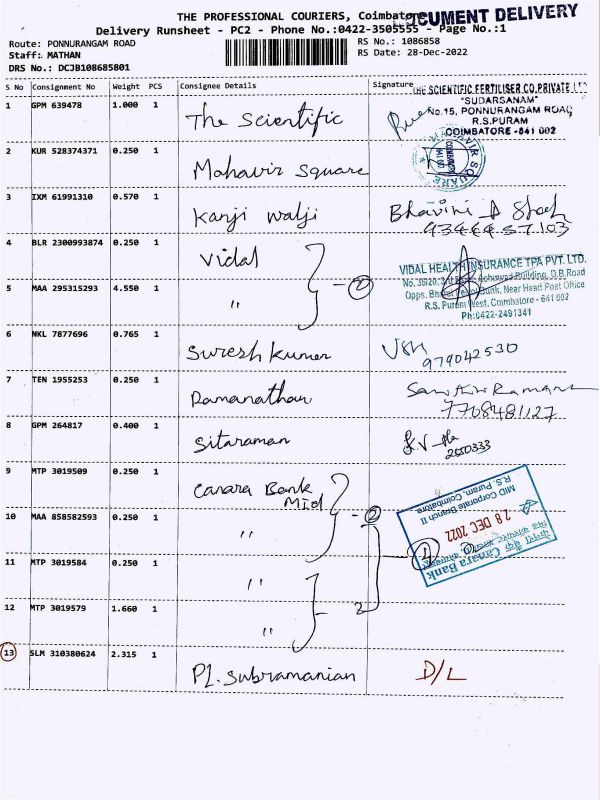 THE PROFESSIONAL COURIERS, Coimbatore
DOCUMENT DELIVERY
Delivery Runsheet - PC2 - Phone No.:0422-3505555 - Page No.:1
Route: PONNURANGAM ROAD
RS No.: 1086858
Staff: MATHAN
RS Date: 28-Dec-2022
DRS No.: DCJB108685801
S No Consignment No Weight PCS Consignee Details Signature
THE SCIENTIFIC FERTILISER CO.PRIVATE LTD
"SUDARSANAM"
No.15, PONNURANGAM ROAD,
R.S.PURAM
COIMBATORE - 641 002
1 GPM 639478 1.000 1 The Scientific
2 KUR 528374371 0.250 1 Mahavir Square
3 IXM 61991310 0.570 1 Kanji Walji Bhavini
4 BLR 2300993874 0.250 1 Vidal
VIDAL HEALTH INSURANCE TPA PVT. LTD.
5 MAA 295315293 4.550 1 "
R.S. Puram West, Coimbatore - 641 002
Ph:0422-2491341
6 NKL 7877696 0.765 1 Suresh Kumar
979042530
7 TEN 1955253 0.250 1 Ramanathan
7708481127
8 GPM 264817 0.400 1 Sitaraman
9 MTP 3019509 0.250 1 Canara Bank
Mid
10 MAA 858582593 0.250 1 "
2
11 MTP 3019584 0.250 1 "
12 MTP 3019579 1.660 1 "
2
Canara Bank
28 DEC 2022
MID Corporate Branch II
R.S. Puram, Coimbatore
13 SLM 310380624 2.315 1 PL. Subramanian D/L